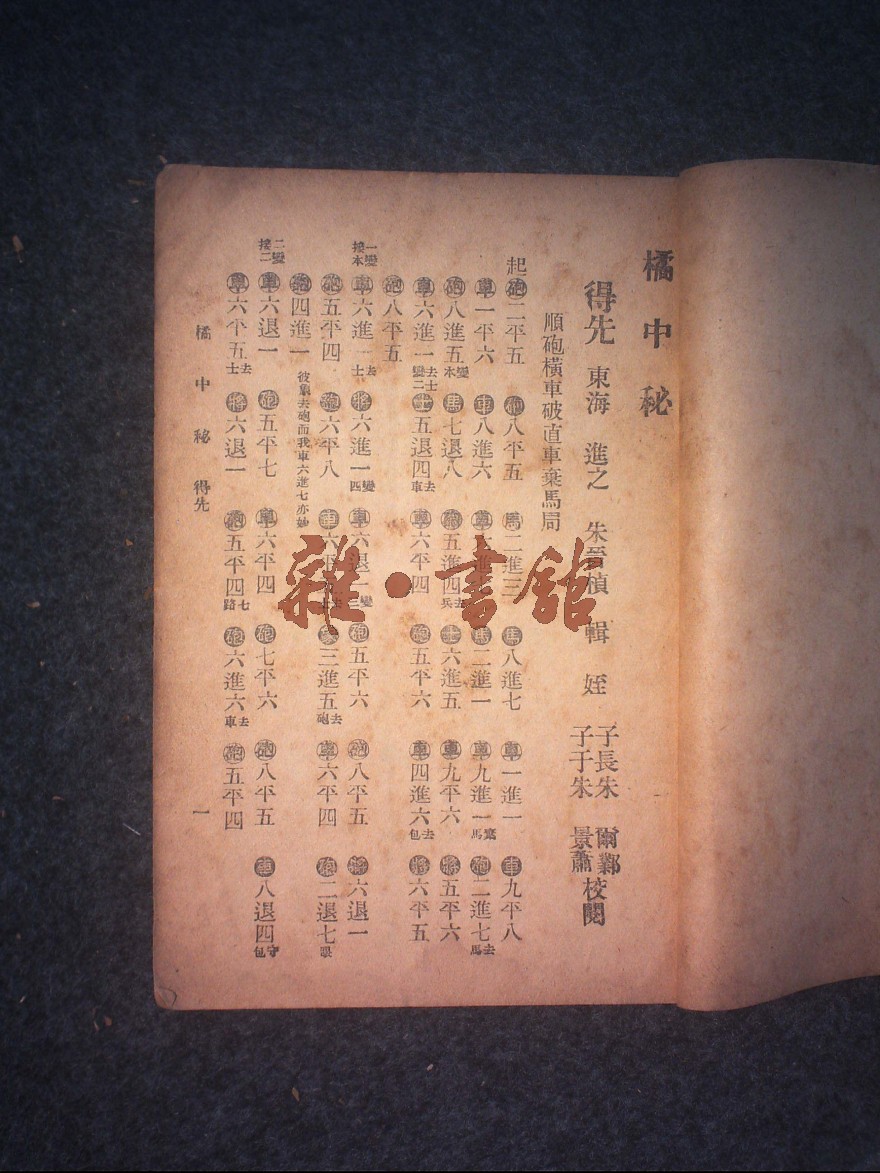 橘中秘
得先 東海 進之 朱晉楨 輯 姪
子長朱 爾鄴
子于朱 景蕭 校閱
順砲橫車破直車棄馬局
起砲二平五 砲八平五 馬二進三 馬八進七 車一進一 車九平八
車一平六 車八進六 車 馬二進一 車九進一棄馬 砲二進七去馬
砲八進五變本 馬七退八 砲五進四去兵 士六進五 車九平六 將五平六
車六進一去士變二 士五退四去車 車六平四 砲五平六 車四進六去包 將六平五
砲八平五
一變接本
車六進一去士 將六進一變四 車六退二變三 砲五平六 砲八平五 將六退一
砲五平四 砲六平八 車六平 三進五去砲 車六平四 砲二退七
砲四進一 彼象去砲而我車六進七亦妙
二變接二
車六退一 砲五平七 車六平四 砲七平六 砲八平五 車八退四守包
車六平五去士 將六退一 砲五平四七路 砲六進六去車 砲五平四
橘中秘 得先 一
雜·書館